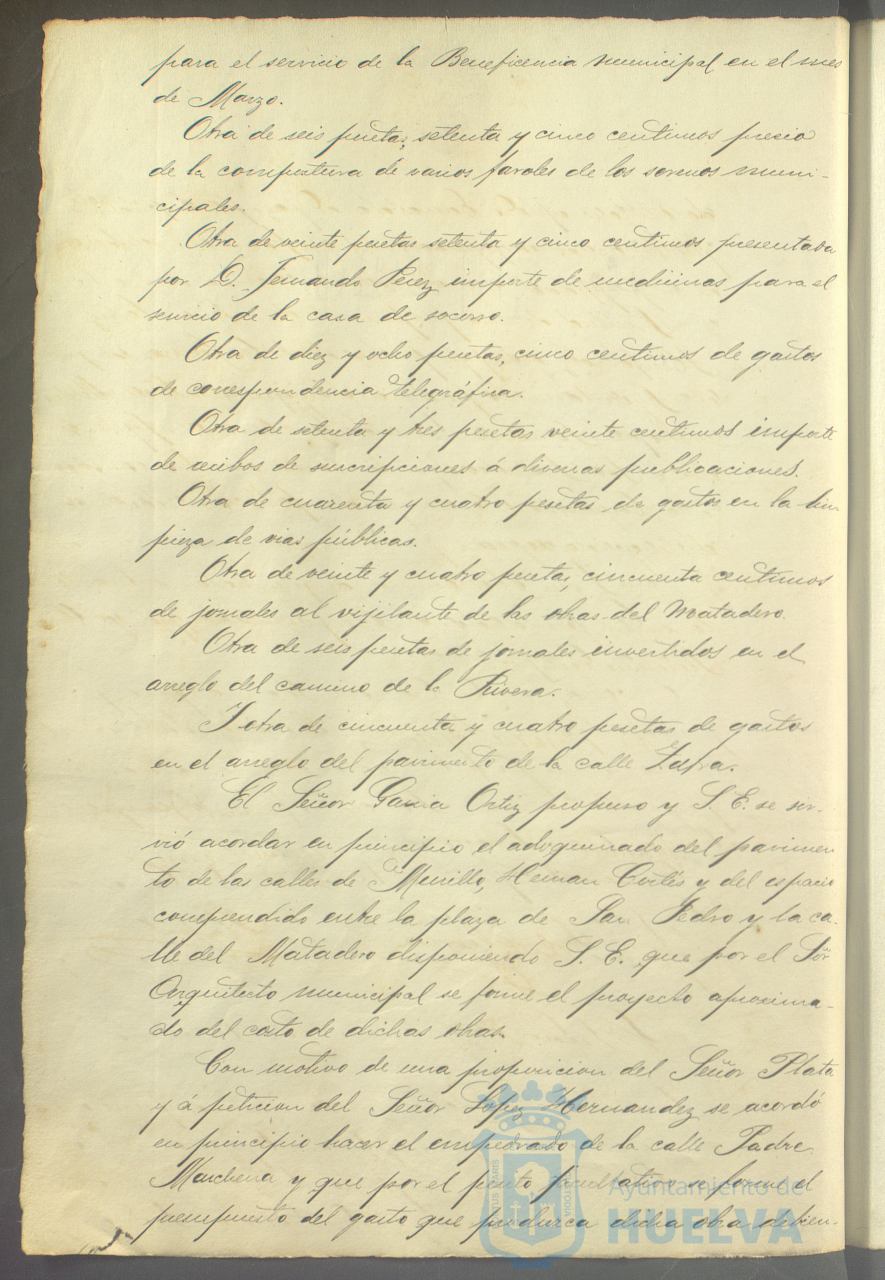 para el servicio de la Beneficencia municipal en el mes
de Marzo.
Otra de seis pesetas, setenta y cinco centimos precio
de la compostura de varios faroles de los serenos muni-
cipales.
Otra de veinte pesetas setenta y cinco centimos presentada
por D. Fernando Perez importe de medicinas para el
servicio de la casa de socorro.
Otra de diez y ocho pesetas, cinco centimos de gastos
de correspondencia telegráfica.
Otra de setenta y tres pesetas veinte centimos importe
de recibos de suscripciones á diversas publicaciones.
Otra de cuarenta y cuatro pesetas de gastos en la lim
pieza de vias públicas.
Otra de veinte y cuatro pesetas, cincuenta centimos
de jornales al vijilante de las obras del Matadero.
Otra de seis pesetas de jornales invertidos en el
arreglo del camino de la Rivera.
Y otra de cincuenta y cuatro pesetas de gastos
en el arreglo del pavimento de la calle Zafra.
El Señor Garcia Ortiz propuso y S. E. se sir-
vió acordar en principio el adoquinado del pavimen
to de las calles de Murillo, Hernan Cortés y del espacio
comprendido entre la plaza de San Pedro y la ca-
lle del Matadero disponiendo S. E. que por el Sõr
Arquitecto municipal se forme el proyecto aproxima-
do del costo de dichas obras.
Con motivo de una proposicion del Señor Plata
y á peticion del Señor Lopez Hernandez se acordó
en principio hacer el empedrado de la calle Padre
Marchena y que por el perito facultativo se forme el
presupuesto del gasto que produzca dicha obra debien-
Ayuntamiento de
HUELVA